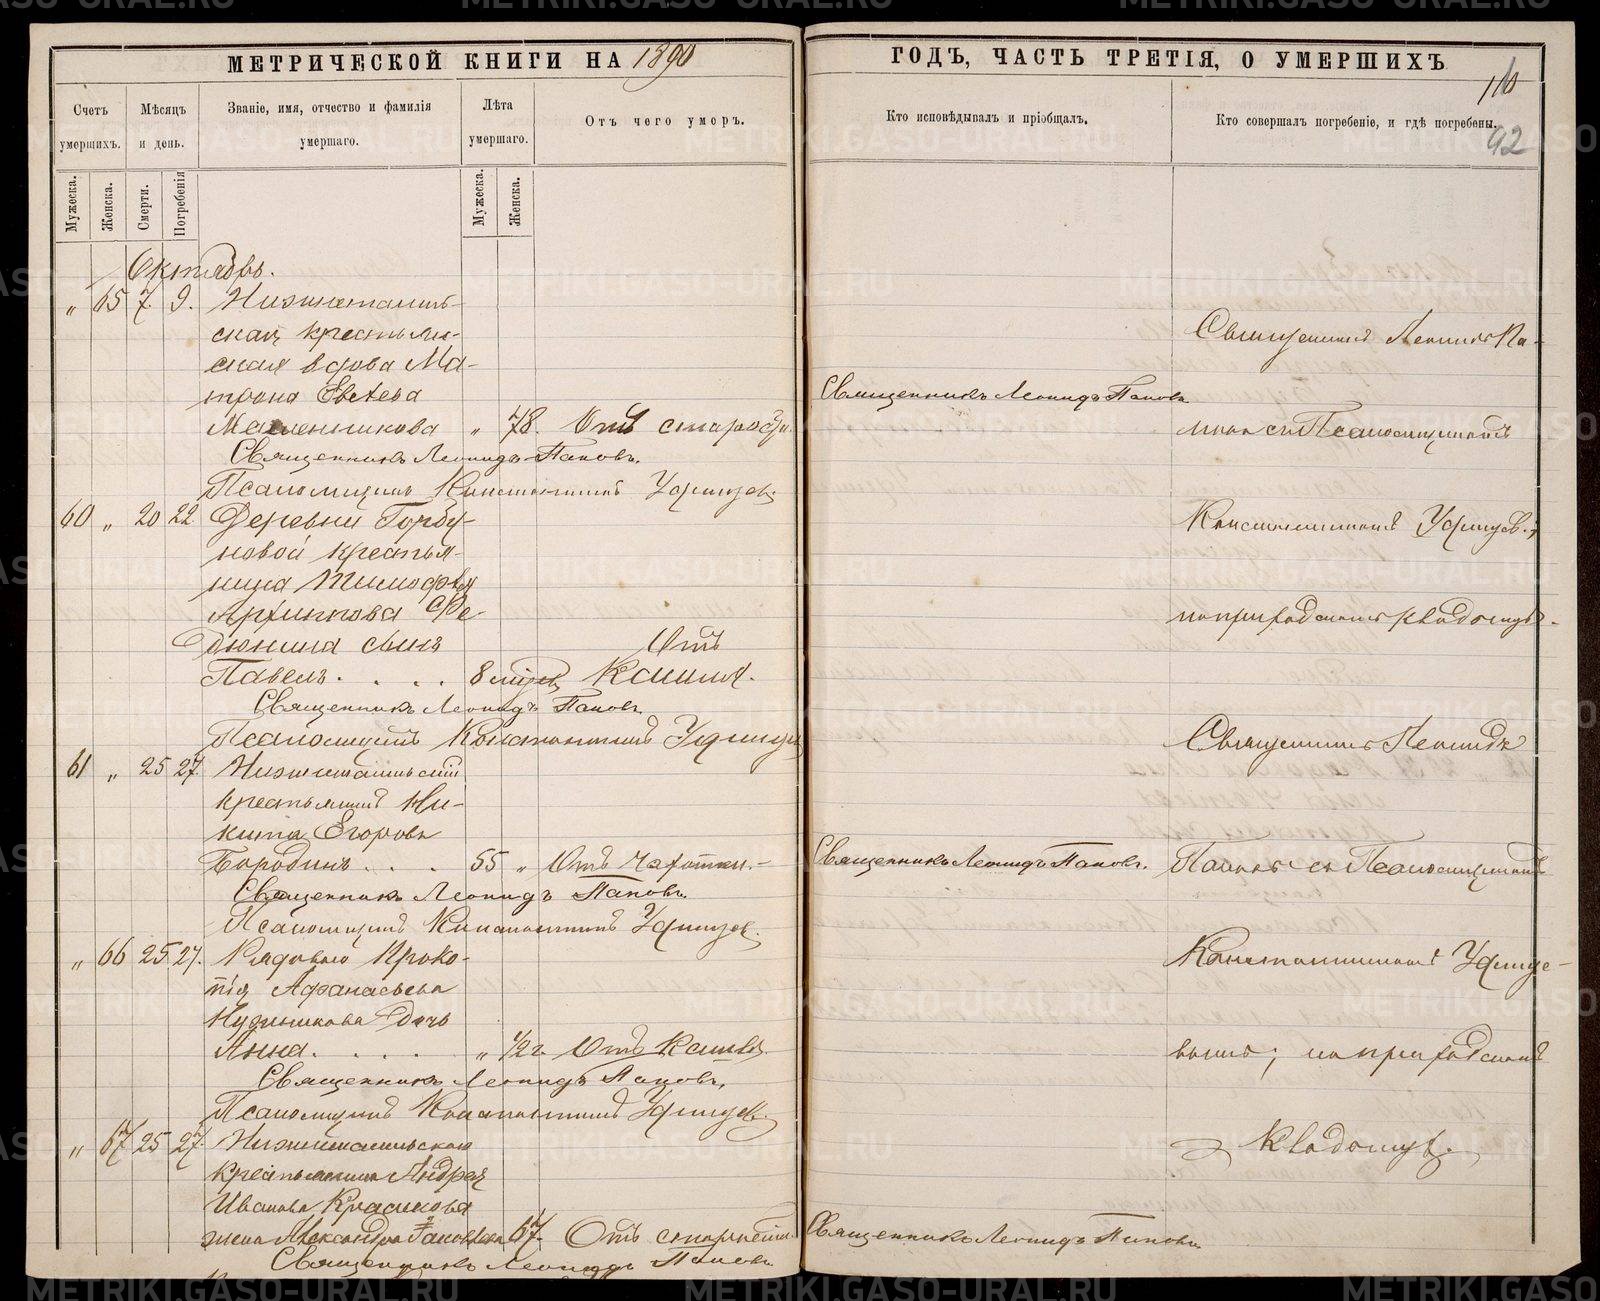 МЕТРИЧЕСКОЙ КНИГИ НА 1890
Счетъ умершихъ.
Мѣсяцъ и день.
Званіе, имя, отчество и фамилія умершаго.
Лѣта умершаго.
Отъ чего умеръ.
Мужеска.
Женска.
Смерти.
Погребенія
Мужеска.
Женска.
Октябрь.
" 65 7. 9. Нижнетагиль-
ская крестьян-
ская вдова Ма-
трона
" 78. Отъ старости.
Священникъ Леонидъ Поповъ.
Псаломщикъ Константинъ
60 " 20 22 Деревни Горбу-
новой крестья-
нина Тимофея
Архипова Фе-
дюнина сынъ
Отъ
Павелъ . . . . 8 Кашля.
Священникъ Леонидъ Поповъ
Псаломщикъ Константинъ
61 " 25 27. Нижнетагильскій
крестьянинъ Ни-
кита Егоровъ
Бородинъ . . . 55 " Отъ чахотки.
Священникъ Леонидъ Поповъ.
Псаломщикъ Константинъ
" 66 25 27. Рядоваго Проко-
пія Афанасьева
дочь
Анна. . . . . " 1/2 г. Отъ Кашля.
Священникъ Леонидъ Поповъ.
Псаломщикъ Константинъ
" 67 25 27. Нижнетагильскаго
крестьянина Андрея
Иванова
жена Александра Яковлева 67. Отъ старости.
Священникъ Леонидъ Поповъ.
ГОДЪ, ЧАСТЬ ТРЕТІЯ, О УМЕРШИХЪ
110
92
Кто исповѣдывалъ и пріобщалъ.
Кто совершалъ погребеніе, и гдѣ погребены.
Священникъ Леонидъ По-
Священникъ Леонидъ Поповъ
съ Псаломщикомъ
Константиномъ
на приходскомъ кладбищѣ.
Священникъ Леонидъ
Священникъ Леонидъ Поповъ.
Поповъ съ Псаломщикомъ
Константиномъ
вымъ; на приходскомъ
кладбищѣ.
Священникъ Леонидъ Поповъ
METRIKI.GASO-URAL.RU